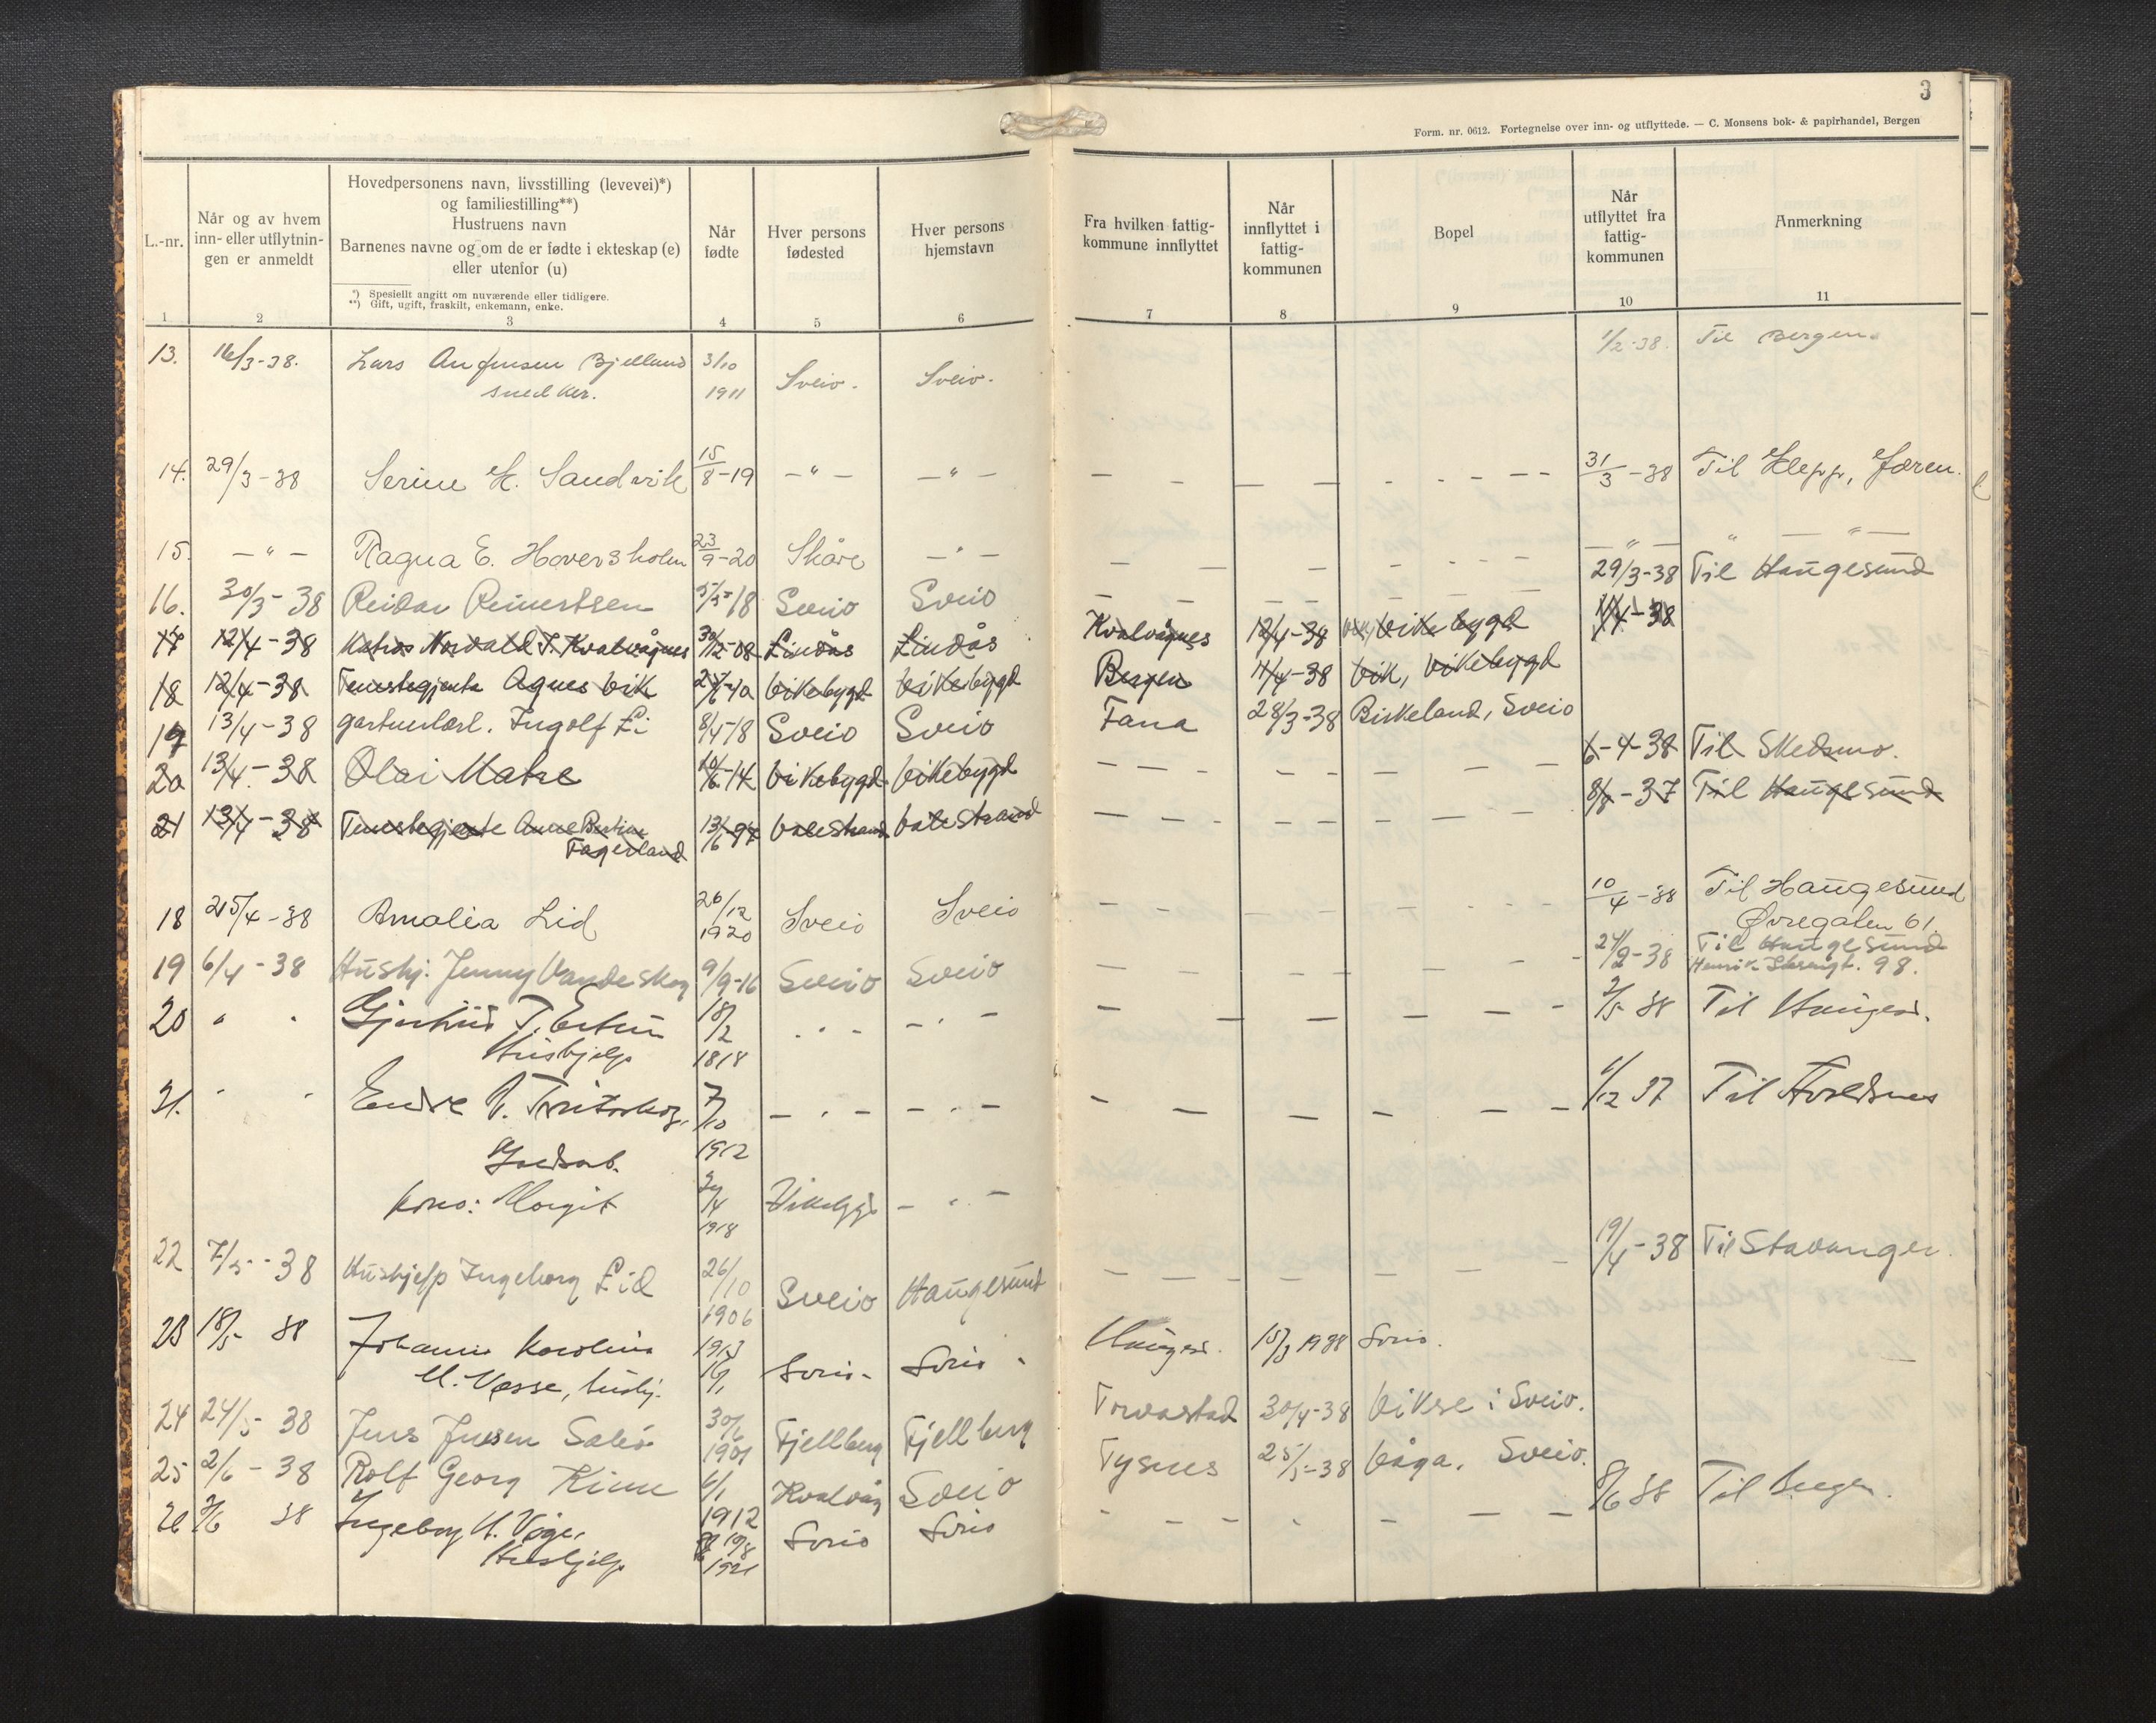 3
Form. nr. 0612. Fortegnelse over inn- og utflyttede. — C. Monsens bok- & papirhandel, Bergen
L.-nr.
Når og av hvem
inn- eller utflytnin-
gen er anmeldt
Hovedpersonens navn, livsstilling (levevei)*)
og familiestilling**)
Hustruens navn
Barnenes navne og om de er fødte i ekteskap (e)
eller utenfor (u)
*) Spesiellt angitt om nuværende eller tidligere.
**) Gift, ugift, fraskilt, enkemann, enke.
Når
fødte
Hver persons
fødested
Hver persons
hjemstavn
Fra hvilken fattig-
kommune innflyttet
Når
innflyttet i
fattig-
kommunen
Bopel
Når
utflyttet fra
fattig-
kommunen
Anmerkning
1 2 3 4 5 6 7 8 9 10 11
13. 16/3-38. Lars Bjelland 3/10 1/2-38. Til Bergen.
snedker. 1911 Sveio. Sveio.
14. 29/3-38 Serine H. Sandvik 15/8-19 -"- -"- 31/3-38 Til Klepp, Jæren.
15. -"- Ragna E. Hoversholm 23/9-20 Skåre -"- -"- " -"-
16. 30/3-38 Reidar Reinertsen 5/5-18 Sveio Sveio 29/3-38 Til Haugesund
17 12/4-38 Norvald J. Kvalvågnes 30/12-08 Lindås Lindås Kvalvågnes 12/4-38 Vikebygd 1/4-38
18 12/4-38 Tenestegjenta Agnes Vik Vikebygd Vikebygd Bergen 11/4-38 Vik, Vikebygd
19 13/4-38 gartnerlærl. Ingolf Li 8/4-18 Sveio Sveio Fana 28/3-38 Birkeland, Sveio
20 13/4-38 Olai Matre 10/6-14 Vikebygd Vikebygd 6-4-38 Til Skedsmo.
21 13/4-38 Tenestegjente Anne Bertine 13/6-94 Valestrand Valestrand 8/8-37 Til Haugesund
Fagerland
18 25/4-38 Amalia Lid 26/12 1920 Sveio Sveio 10/4-38 Til Haugesund
Øvregaten 61.
19 6/4-38 Hushj. Jenny Vandeskog 9/9-16 Sveio Sveio 24/2-38 Til Haugesund
98.
20 " " 18/2 1818 2/5 38 Til Hauges.
Hushjelp
21. " " Endre 7/10 1912 6/12 37 Til Avaldsnes
Jordarb.
Kono: Margit 24/4 1918 Vikebygd
22 7/5-38 Hushjelp Ingeborg Lid 26/10 1906 Sveio Haugesund 19/4-38 Til Stavanger.
23 18/5 38 Johanne Karoline 1913 Sveio Sveio Hauges. 15/3 1938 Sveio.
M. Vasse, hushj. 16/1
24 24/5-38 Jens Jensen 30/6 1901 Fjellberg Fjellberg Torvastad 30/4-38 Vikse i Sveio.
25 2/6-38 Rolf Georg Kinn 6/1 1912 Kvalvåg Sveio Tysnes 25/5-38 Våga, Sveio.
26 7/6 38 Ingeborg H. Våge, 10/8 1921 Sveio Sveio 8/6 38 Til Bergen.
Hushjelp